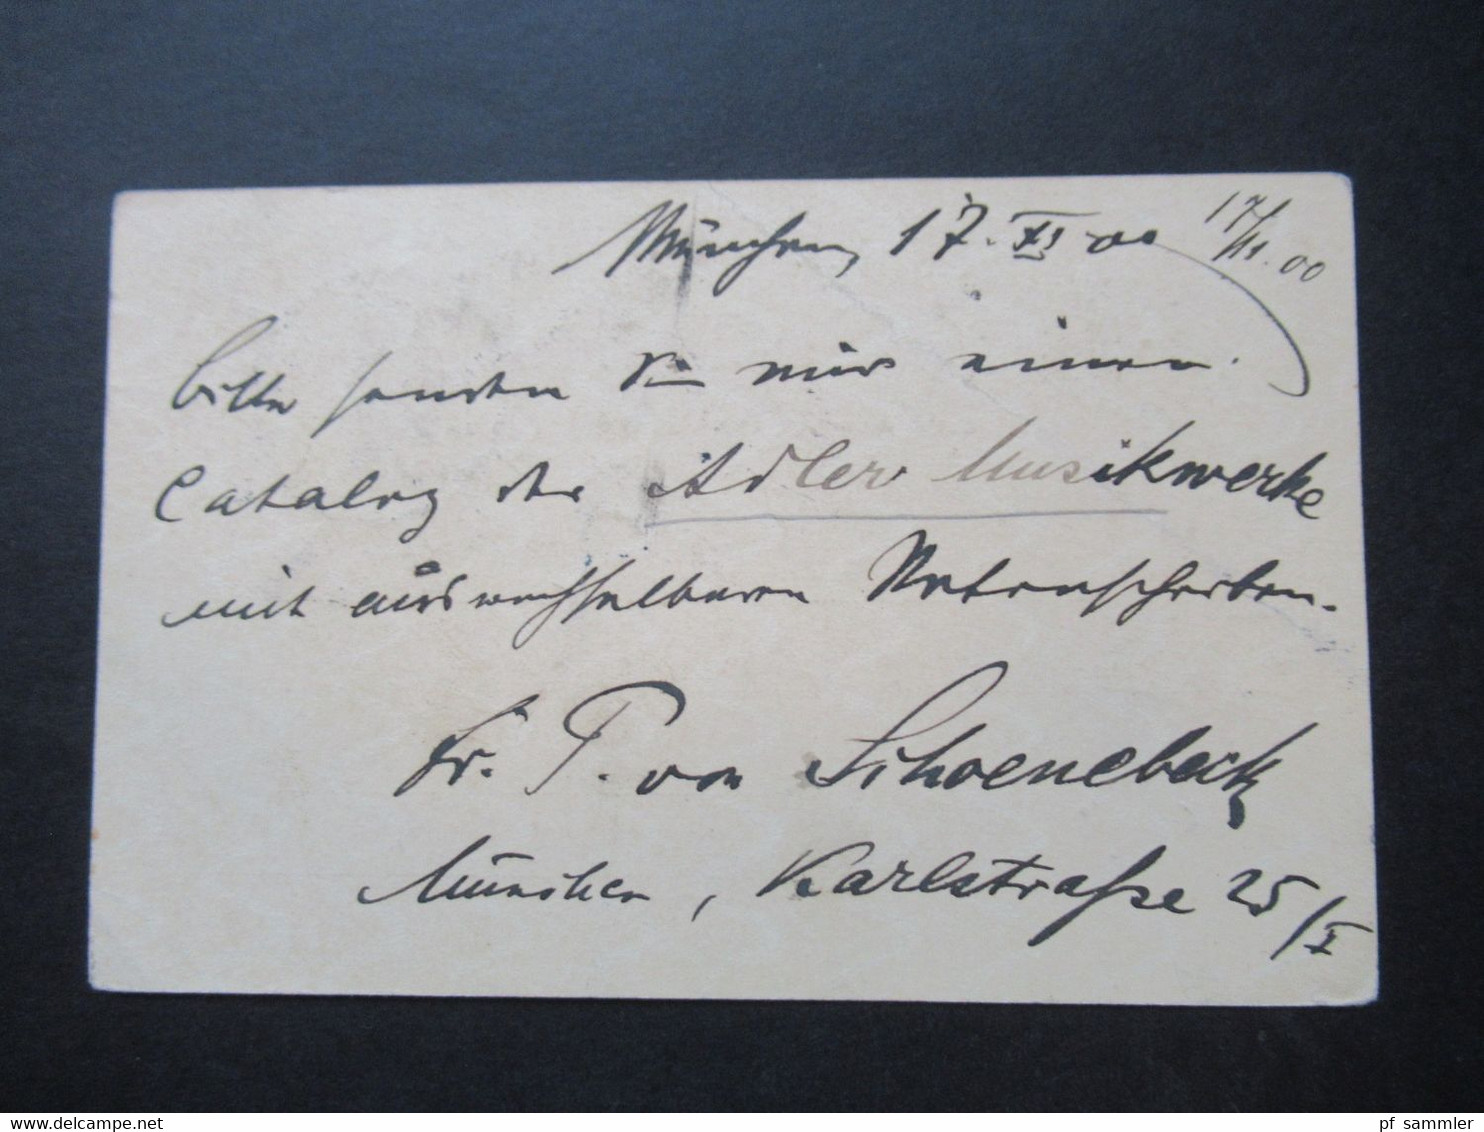 München, 17. XI 00 17/11.00
bitte senden Sie mir einen
Catalog der Adler Musikwerke
mit auswechselbaren Notenscheiben.
Fr. P. von Schoenebeck
München, Karlstraße 25/I
www.delcampe.net
pf_sammler